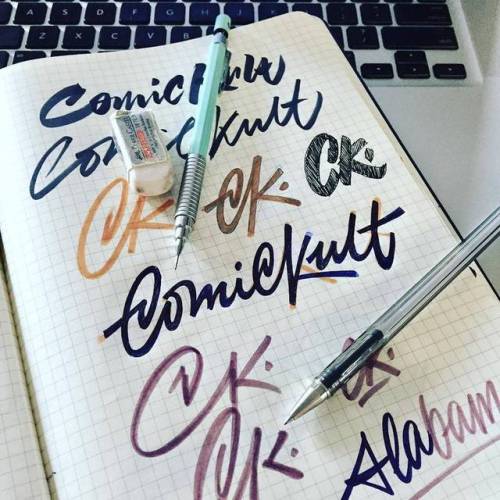 ComicKult
ComicKult
CK. CK. CK.
ComicKult
CK. CK.
CK.
Alabam